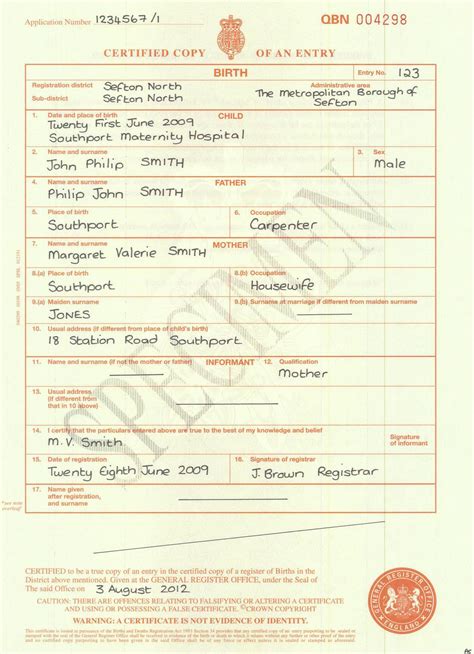 Application Number 1234567/1
QBN 004298
CERTIFIED COPY OF AN ENTRY
BIRTH
Entry No. 123
Registration district Sefton North
Administrative area
Sub-district Sefton North
The Metropolitan Borough of Sefton
1. Date and place of birth CHILD
Twenty First June 2009
Southport Maternity Hospital
2. Name and surname
3. Sex
John Philip SMITH
Male
4. Name and surname FATHER
Philip John SMITH
5. Place of birth
6. Occupation
Southport
Carpenter
7. Name and surname MOTHER
Margaret Valerie SMITH
8.(a) Place of birth
8.(b) Occupation
Southport
Housewife
9.(a) Maiden surname
9.(b) Surname at marriage if different from maiden surname
JONES
10. Usual address (if different from place of child's birth)
18 Station Road Southport
11. Name and surname (if not the mother or father) INFORMANT
12. Qualification
Mother
13. Usual address
(if different from
that in 10 above)
14. I certify that the particulars entered above are true to the best of my knowledge and belief
M.V. Smith
Signature
of informant
15. Date of registration
16. Signature of registrar
Twenty Eighth June 2009
J. Brown Registrar
17. Name given
after registration,
and surname
*see note
overleaf
SPECIMEN
CERTIFIED to be a true copy of an entry in the certified copy of a register of Births in the
District above mentioned. Given at the GENERAL REGISTER OFFICE, under the Seal of
The said Office on 3 August 2012
CAUTION: THERE ARE OFFENCES RELATING TO FALSIFYING OR ALTERING A CERTIFICATE
AND USING OR POSSESSING A FALSE CERTIFICATE. ©CROWN COPYRIGHT
WARNING: A CERTIFICATE IS NOT EVIDENCE OF IDENTITY.
GENERAL REGISTER OFFICE
ENGLAND